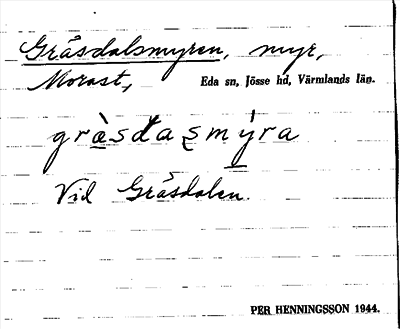 Gråsdalsmyren, myr,
Morast, Eda sn, Jösse hd, Värmlands län.
gràsdasmýra
Vid Gråsdalen.
PER HENNINGSSON 1944.